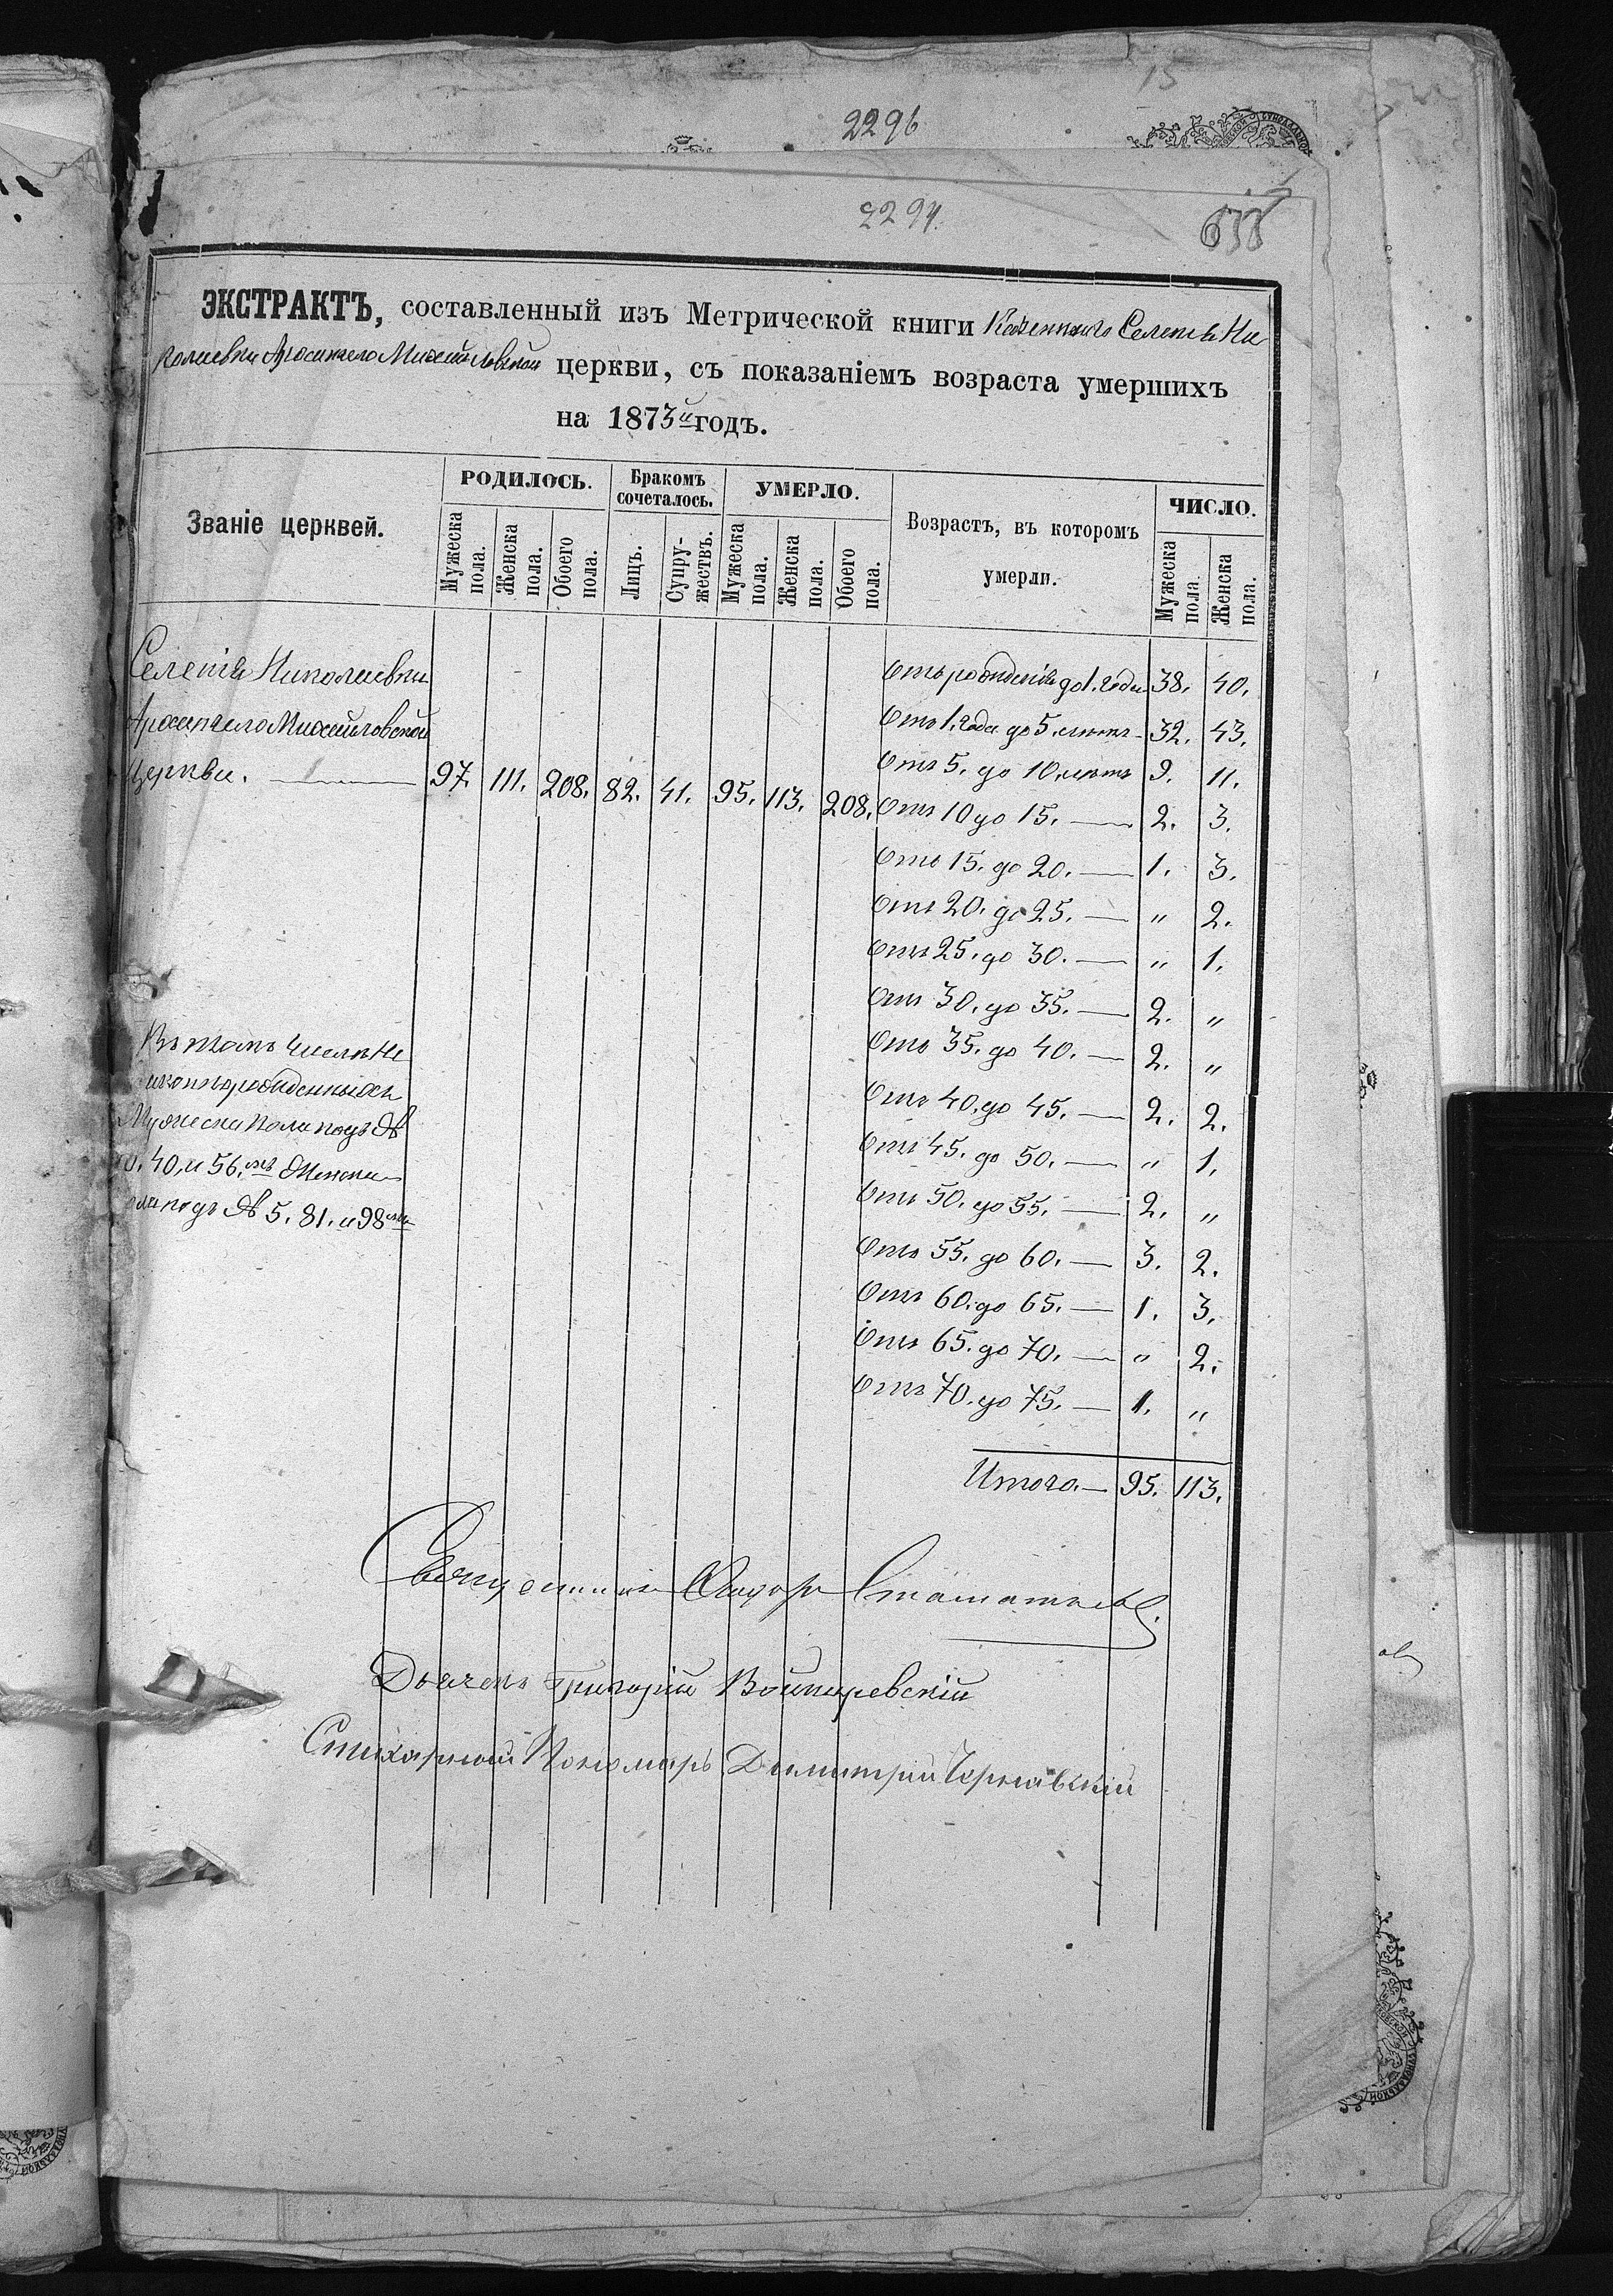 2296
2294.
ЭКСТРАКТЪ, составленный изъ Метрической книги Казеннаго Селенія Ни
колаевки Архангело Михайловской церкви, съ показаніемъ возраста умершихъ
на 1873й годъ.
Званіе церквей.
РОДИЛОСЬ.
Мужеска пола.
Женска пола.
Обоего пола.
Бракомъ сочеталось.
Лицъ.
Супружествъ.
УМЕРЛО.
Мужеска пола.
Женска пола.
Обоего пола.
Возрастъ, въ которомъ умерли.
ЧИСЛО.
Мужеска пола.
Женска пола.
Селенія Николаевки
Архангело Михайловской
Церкви. — 97. 111. 208. 82. 41. 95. 113. 208.
Отъ рожденія до 1. года 38. 40.
Отъ 1. года до 5. лѣтъ 32. 43.
Отъ 5. до 10. лѣтъ 9. 11.
Отъ 10 до 15. — 2. 3.
Отъ 15. до 20. — 1. 3.
Отъ 20. до 25. — " 2.
Отъ 25. до 30. — " 1.
Отъ 30. до 35. — 2. "
Отъ 35. до 40. — 2. "
Отъ 40. до 45. — 2. 2.
Отъ 45. до 50. — " 1.
Отъ 50. до 55. — 2. "
Отъ 55. до 60. — 3. 2.
Отъ 60. до 65. — 1. 3.
Отъ 65. до 70. — " 2.
Отъ 70. до 75. — 1. "
Итого. — 95. 113.
Въ томъ числѣ Не
законнорожденныхъ
Мужеска пола подъ №
40. и 56. мъ Женска
подъ № 5. 81. и 98мъ
Священникъ
Дьячекъ Григорій Войнаревскій
Стихарный Пономарь Димитрій Чернавскій